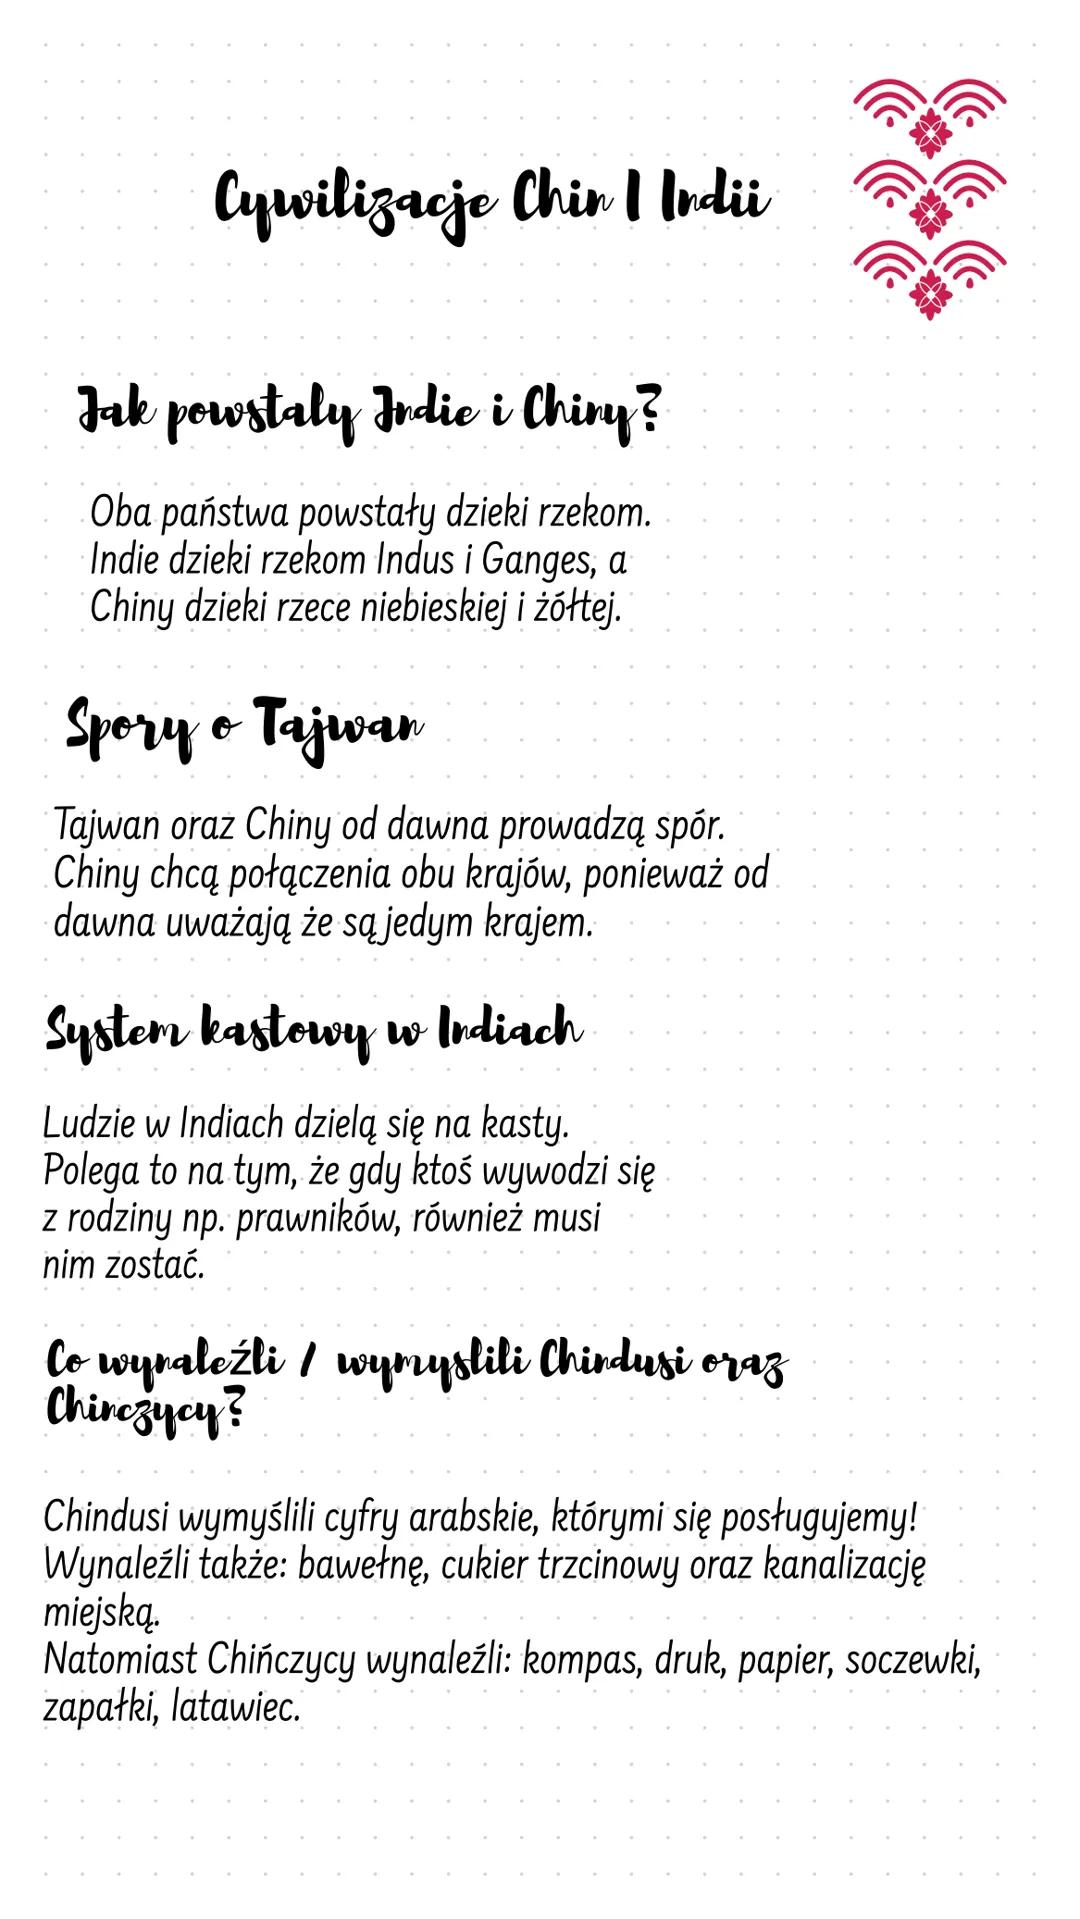 Cywilizacje Chin I Indii
Jak powstaly Indie i Chiny?
Oba państwa powstały dzieki rzekom.
Indie dzieki rzekom Indus i Ganges, a
Chiny dzieki rzece niebieskiej i żółtej.
Spory o Tajwan
Tajwan oraz Chiny od dawna prowadzą spór.
Chiny chcą połączenia obu krajów, ponieważ od
dawna uważają że są jedym krajem.
System kastowy w Indiach
Ludzie w Indiach dzielą się na kasty.
Polega to na tym, że gdy ktoś wywodzi się
z rodziny np. prawników, również musi
nim zostać.
Co wynaleźli / wymyslili Chindusi oraz
Chinczycy?
Chindusi wymyślili cyfry arabskie, którymi się posługujemy!
Wynaleźli także: bawełnę, cukier trzcinowy oraz kanalizację
miejską.
Natomiast Chińczycy wynaleźli: kompas, druk, papier, soczewki,
zapałki, latawiec.